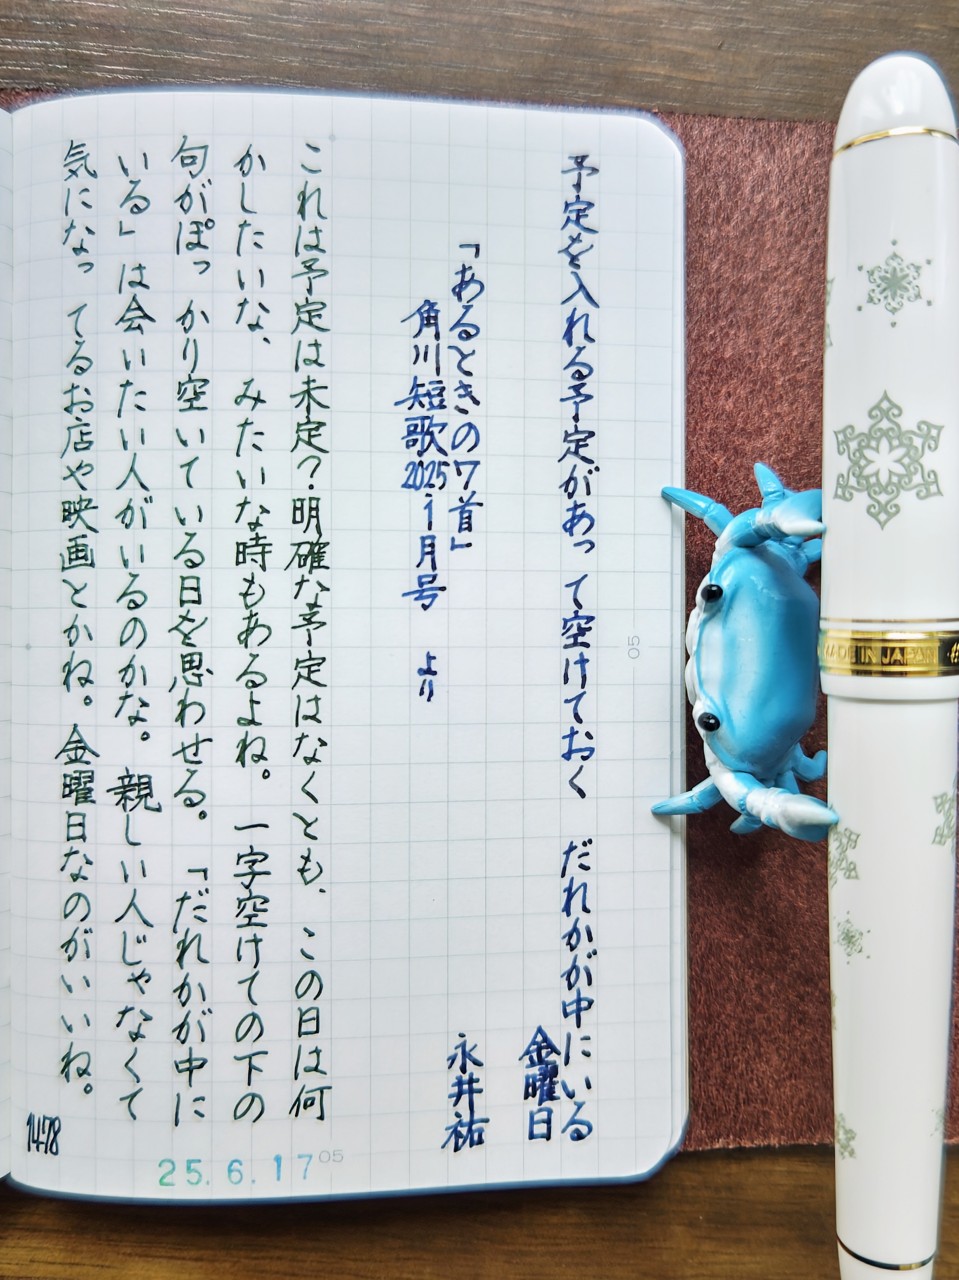 予定を入れる予定があって空けておく　だれかが中にいる
金曜日
永井祐
「あるときの7首」
角川短歌2025 1月号　より
これは予定は未定?明確な予定はなくとも、この日は何
かしたいな、みたいな時もあるよね。一字空けての下の
句がぽっかり空いている日を思わせる。「だれかが中に
いる」は会いたい人がいるのかな。親しい人じゃなくて
気になってるお店や映画とかね。金曜日なのがいいね。
1478
25.6.17
05
05
MADE IN JAPAN